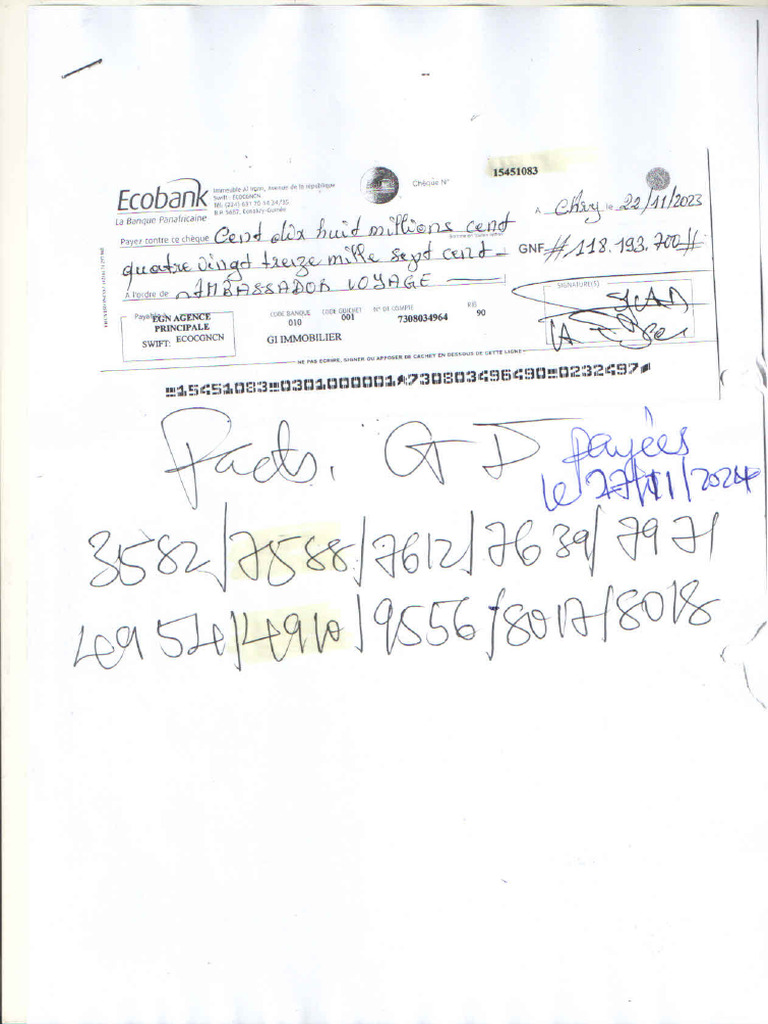 15451083
Ecobank
La Banque Panafricaine
Immeuble Al Iman, Avenue de la république
Swift : ECOCGNCN
Tél. (224) 631 70 14 34/35
B.P. 5687, Conakry-Guinée
Chèque N°
A Ckry le 22/11/2023
Payez contre ce chèque Cent dix huit millions cent
quatre vingt treize mille sept cent
GNF # 118.193.700 #
A l'ordre de AMBASSADOR VOYAGE
Payable à
EGN AGENCE
PRINCIPALE
SWIFT: ECOCGNCN
CODE BANQUE
010
CODE GUICHET
001
N° DE COMPTE
7308034964
RIB
90
GI IMMOBILIER
SIGNATURE(S)
NE PAS ECRIRE, SIGNER OU APPOSER DE CACHET EN DESSOUS DE CETTE LIGNE
15451083 0301000001 730803496490 0232497
Facts. GTD payées
le 27/11/2024
3582/7588/7612/7639/7971
4954/4910/9556/8017/8018